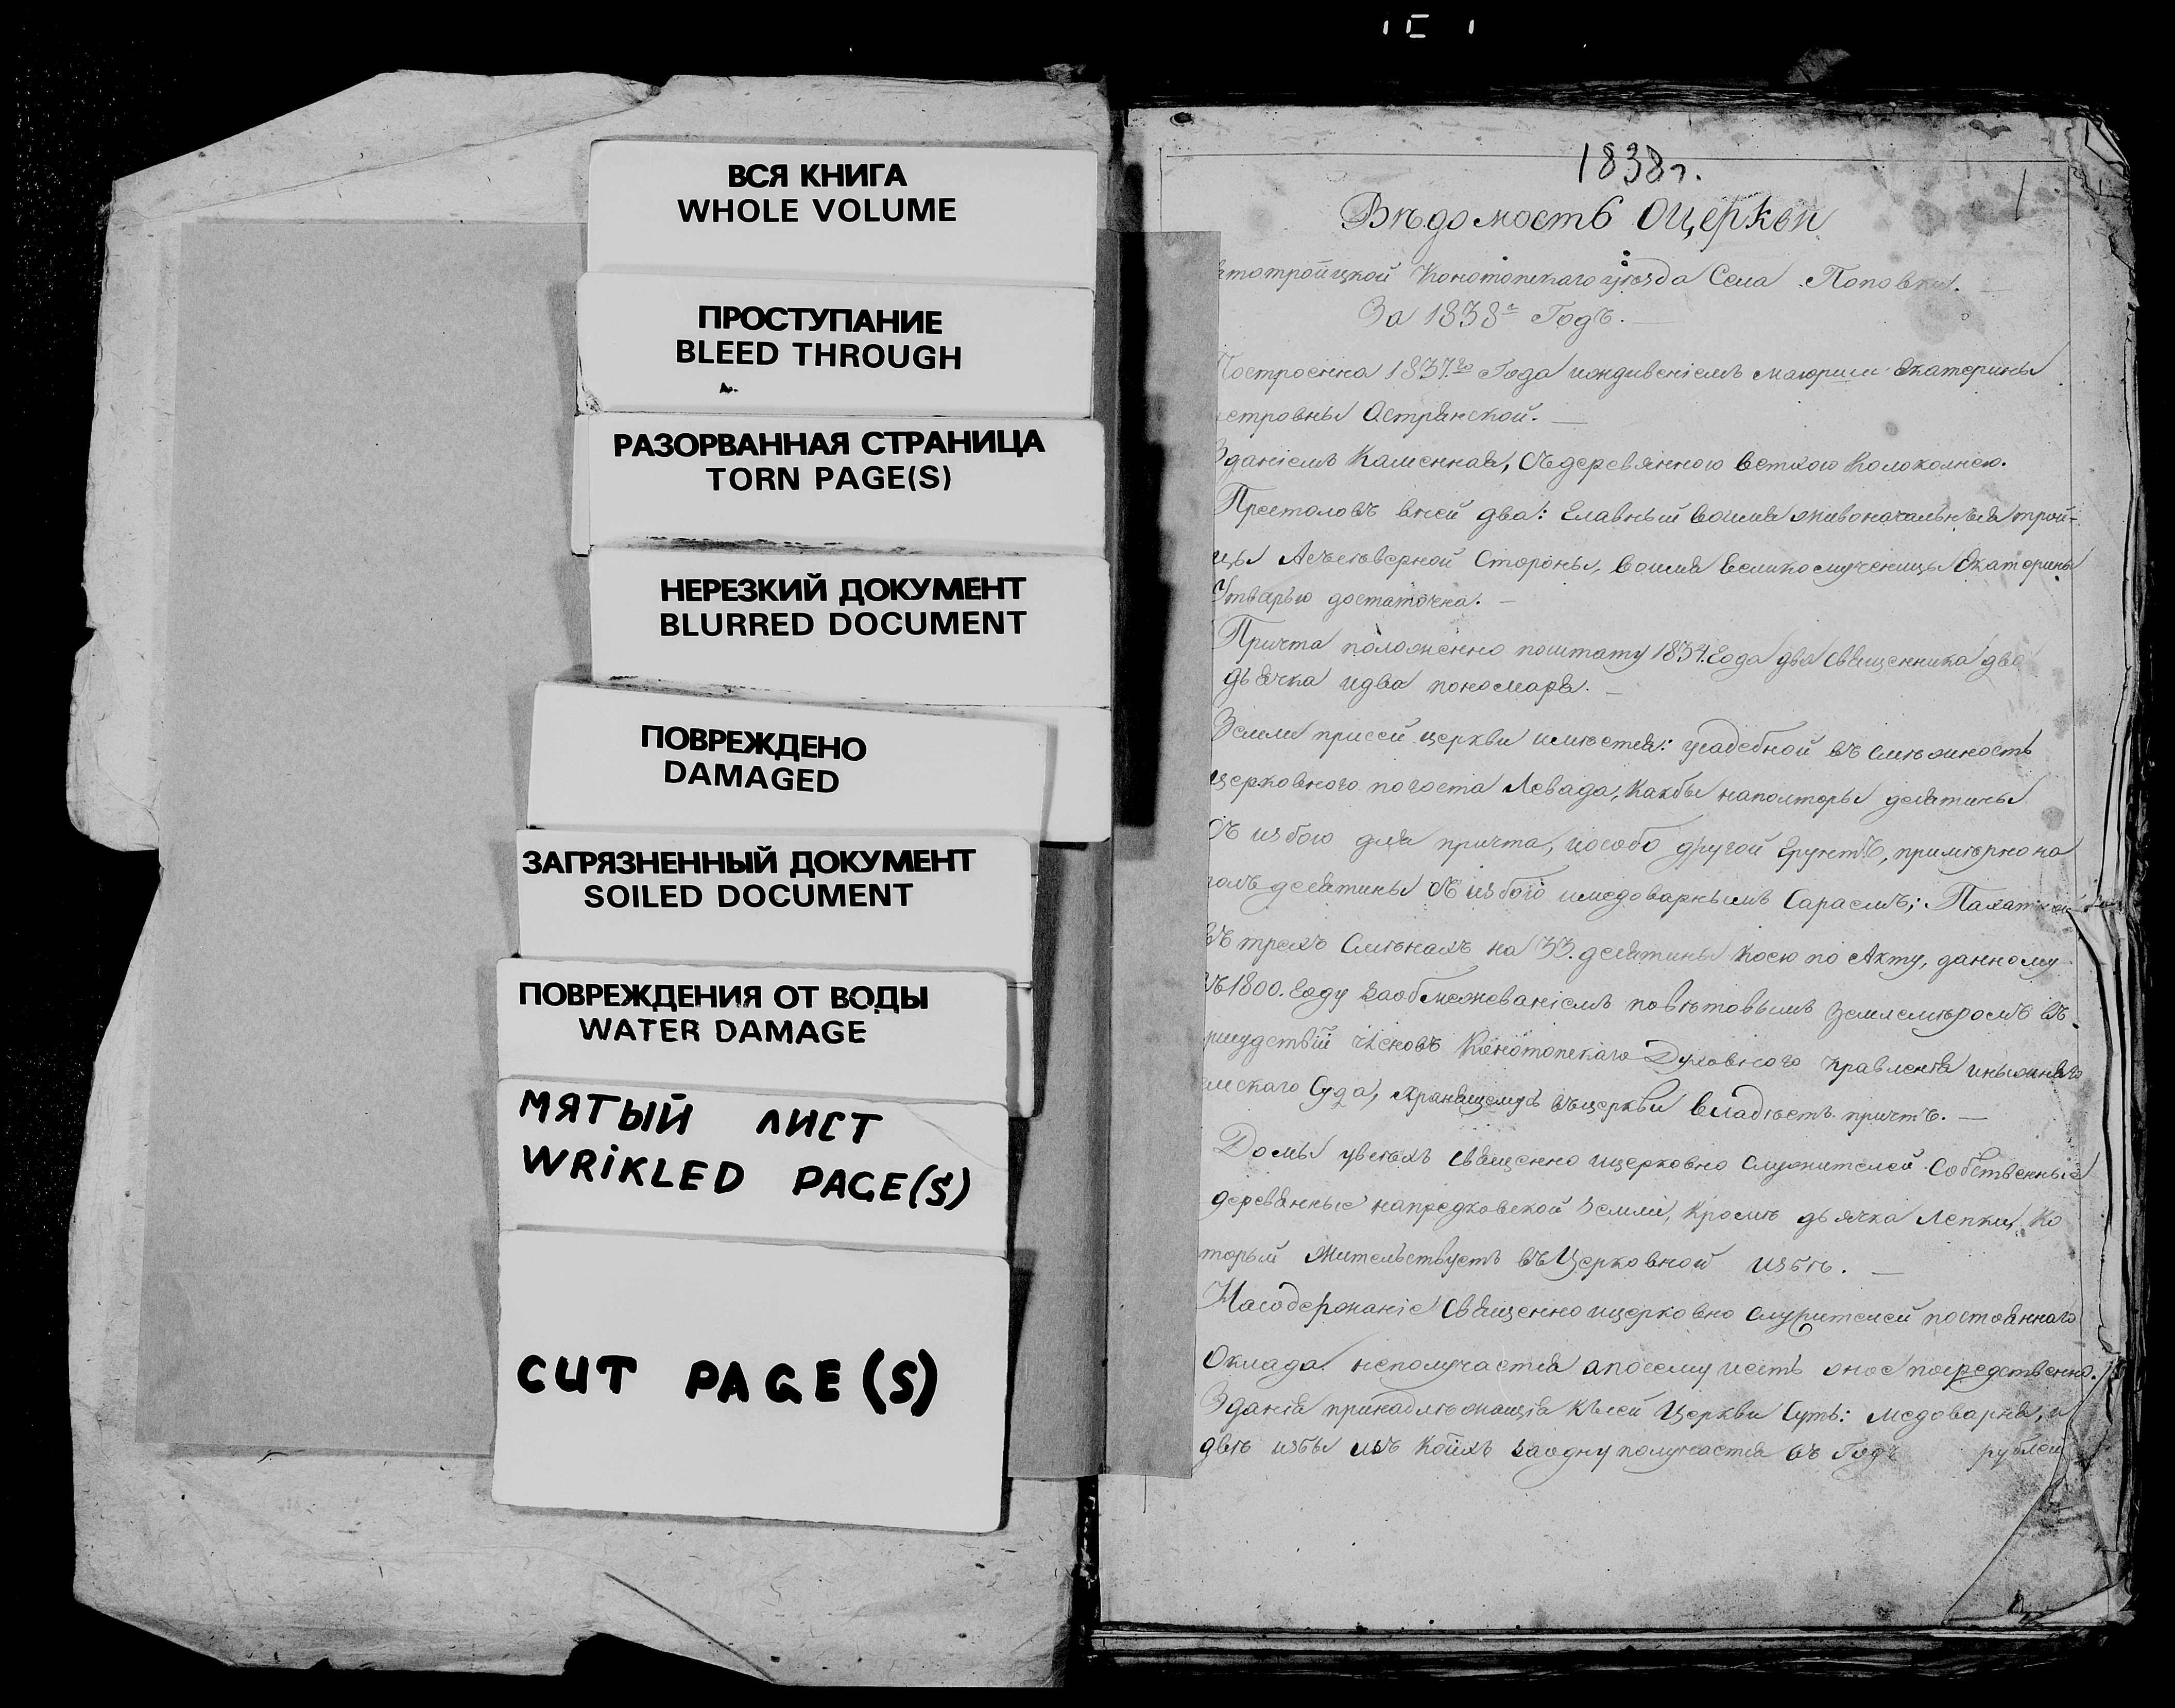 ВСЯ КНИГА
WHOLE VOLUME
ПРОСТУПАНИЕ
BLEED THROUGH
РАЗОРВАННАЯ СТРАНИЦА
TORN PAGE(S)
НЕРЕЗКИЙ ДОКУМЕНТ
BLURRED DOCUMENT
ПОВРЕЖДЕНО
DAMAGED
ЗАГРЯЗНЕННЫЙ ДОКУМЕНТ
SOILED DOCUMENT
ПОВРЕЖДЕНИЯ ОТ ВОДЫ
WATER DAMAGE
МЯТЫЙ ЛИСТ
WRIKLED PAGE(S)
CUT PAGE(S)
1838г.
1
Вѣдомость оцеркви
тотройцкой Конотопскаго уѣзда Села Поповки.
За 1838й Годъ.
Построенна 1837го Года иждивеніемъ маюрши Екатерины
етровны Острянской.
Зданіемъ Каменная, Съдеревянною ветхою Колокольнею.
Престоловъ вней два: Главный воимя живоначальныя трой-
цы Асъсѣверной Стороны, воимя великомученицы Екатерины
Утварью достаточна.
Причта положенно поштату 1834. Года два священника два
дьячка идва пономаря.
Земли присей церкви имѣется: усадебной въ смѣжность
церковного погоста Левада, Какбы наполторы десятины
Съ избою для причта, иособо другой Грунтъ, примѣрно на
полъ десятины Съ избою имедоварнымъ Сараемъ; Пахатной
Въ трехъ Смѣнахъ на 33. десятины Косю по Акту, данному
Въ1800. Году заобмежеваніемъ повѣтовымъ Землемѣромъ въ
рисудствіи членовъ Конотопскаго Духовного Правленія инижняго
емскаго Суда, хранящемусь въцеркви владѣетъ причтъ.
Домы увсѣхъ священно ицерковно служителей Собственные
деревянные напредковской Земли, Кромѣ дьячка Лепки, Ко
торый жительствуетъ въ Церковной избѣ.
Насодержаніе Священно ицерковно служителей постояннаго
Оклада неполучается апосему иесть оное посредственно.
Зданія принадлѣжащія късей Церкви Суть: медоварня, и
двѣ избы изъ Коихъ заодну получается въ Годъ рублей